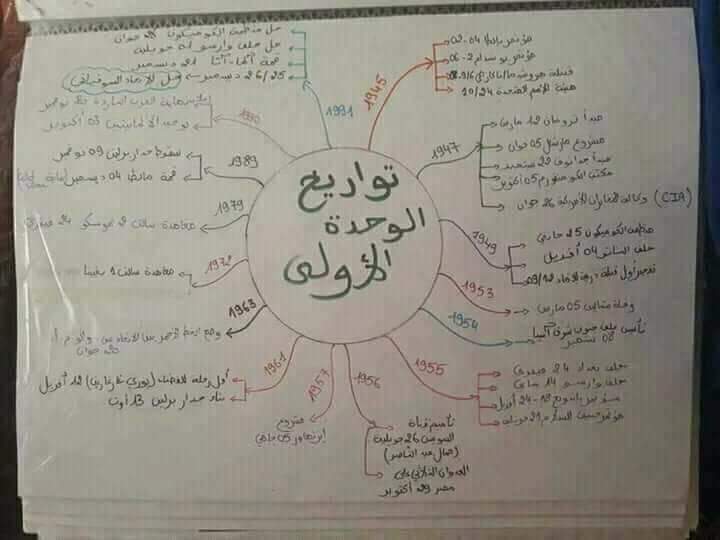 تواريخ
الوحدة
الأولى
1945
مؤتمر يالطا 04-02
هيئة الأمم المتحدة 10/24
1947
مبدأ ترومان 12 مارس
مشروع مارشال 05 جوان
مبدأ جدانوف 22 سبتمبر
مكتب الكومنفورم 05 أكتوبر
وكالة المخابرات الأمريكية 26 جوان (CIA)
1949
منظمة الكوميكون 25 جانفي
حلف الناتو 04 أفريل
1953
وفاة ستالين 05 مارس
1954
تأسيس حلف جنوب شرق آسيا
08 سبتمبر
1955
حلف بغداد 24 فيفري
حلف وارسو 14 ماي
مؤتمر باندونغ 18-24 أفريل
1956
تأميم قناة
السويس 26 جويلية
(جمال عبد الناصر)
العدوان الثلاثي على
مصر 29 أكتوبر
1957
مشروع
إيزنهاور 05 جانفي
1961
أول رحلة للفضاء (يوري غاغارين) 12 أفريل
بناء جدار برلين 13 أوت
1963
1972
معاهدة سالت 1
1979
معاهدة سالت 2 موسكو
1989
سقوط جدار برلين 09 نوفمبر
قمة مالطا 04 ديسمبر
1990
توحيد الألمانيتين 03 أكتوبر
1991
حل منظمة الكوميكون 28 جوان
حل حلف وارسو 01 جويلية
قمة ألما-آتا 21 ديسمبر
26/25 ديسمبر حل الاتحاد السوفياتي